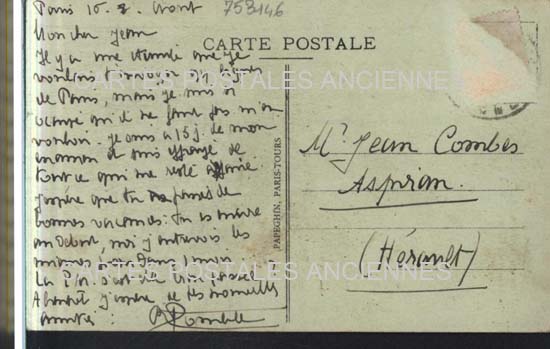 Paris 10. 8. Avant
753146
Mon cher Jean
CARTE POSTALE
Il y a une étude que je
voulais t'envoyer
CARTES POSTALES ANCIENNES
de Paris, mais je suis si
occupé qu'il ne faut pas m'en
vouloir. Je suis à 15 j. de mon
examen et suis effrayé de
tout ce qui me reste à faire
J'espère que tu passes de
bonnes vacances. Tu es
au début, moi j'entrevois les
miennes dans 1 mois
CARTES POSTALES ANCIENNES
A bientôt j'espère de tes nouvelles
Amitiés.
PAPEGHIN, PARIS-TOURS
Mr. Jean Combes
Aspiran.
(Hérault)